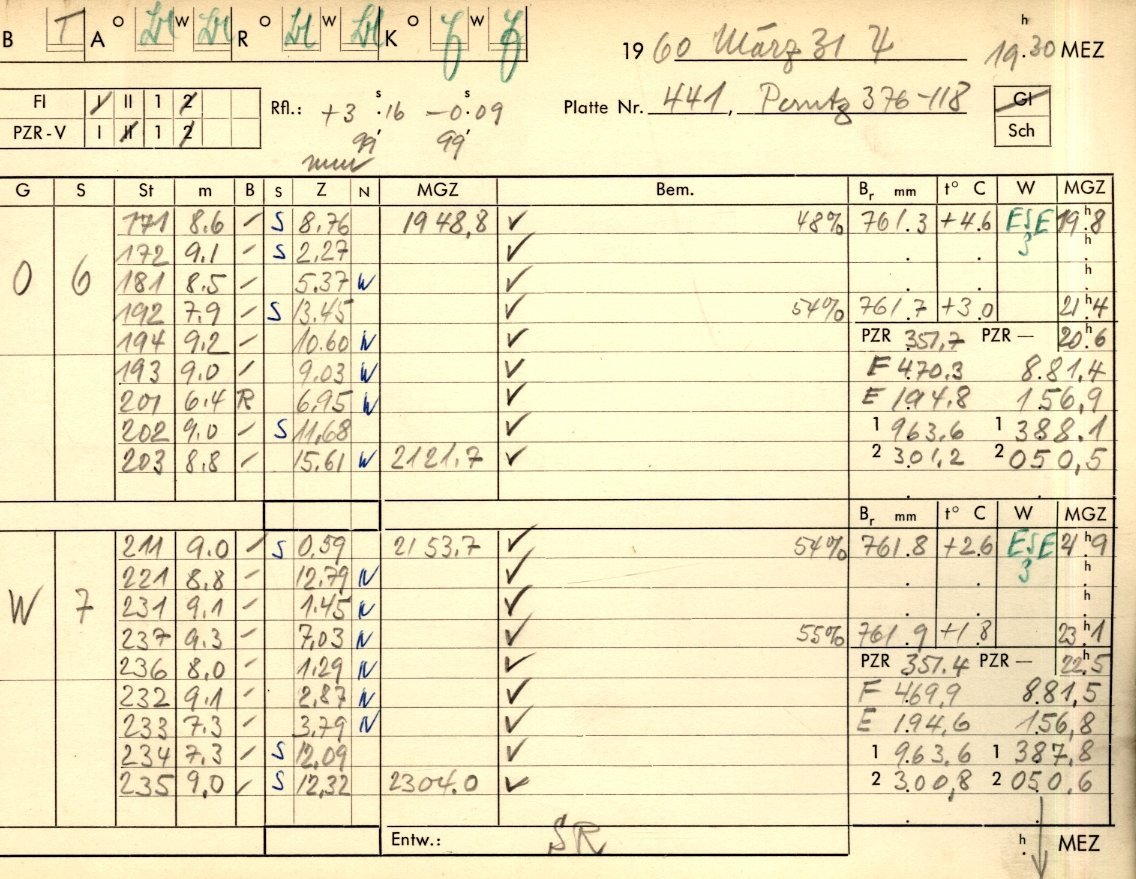 B T A O W R O W K O W 1960 März 31 4 19h.30 MEZ
FI I II 1 2 Rfl.: +3s.16 −0s.09 Platte Nr. 441, Perutz 376-118 GI
PZR-V I II 1 2 99' 99' Sch
G S St m B S Z N MGZ Bem. Br mm t° C W MGZ
171 8.6 / S 8,76 1948,8 ✓ 48% 761.3 +4.6 ESE 19h.8
172 9.1 / S 2,27 ✓ 3 . . h.
O 6 181 8.5 / 5.37 W ✓ . . h.
192 7.9 / S 13.45 ✓ 54% 761.7 +3.0 21h4
194 9.2 / 10.60 N ✓ PZR 351,7 PZR — 20h.6
193 9.0 / 9.03 W ✓ F 470.3 8.81,4
201 6.4 R 6,95 W ✓ E 194,8 156,9
202 9.0 / S 11,68 ✓ 1 963,6 1 388.1
203 8.8 / 15.61 W 2121,7 ✓ 2 301,2 2 050,5
Br mm t° C W MGZ
211 9.0 / S 0,59 2153,7 ✓ 54% 761.8 +2.6 ESE 21h.9
221 8.8 / 12,79 N ✓ 3 . . h.
W 7 231 9.1 / 1.45 N ✓ . . h.
237 9.3 / 7,03 N ✓ 55% 761.9 +1.8 23h1
236 8,0 / 1,29 N ✓ PZR 351.4 PZR — 22h.5
232 9.1 / 2,87 N ✓ F 469,9 8.81,5
233 7.3 / 3,79 N ✓ E 194,6 156,8
234 7,3 / S 12,09 ✓ 1 963,6 1 387,8
235 9,0 / S 12,32 2304.0 ✓ 2 300,8 2 050,6
Entw.: SR h. MEZ